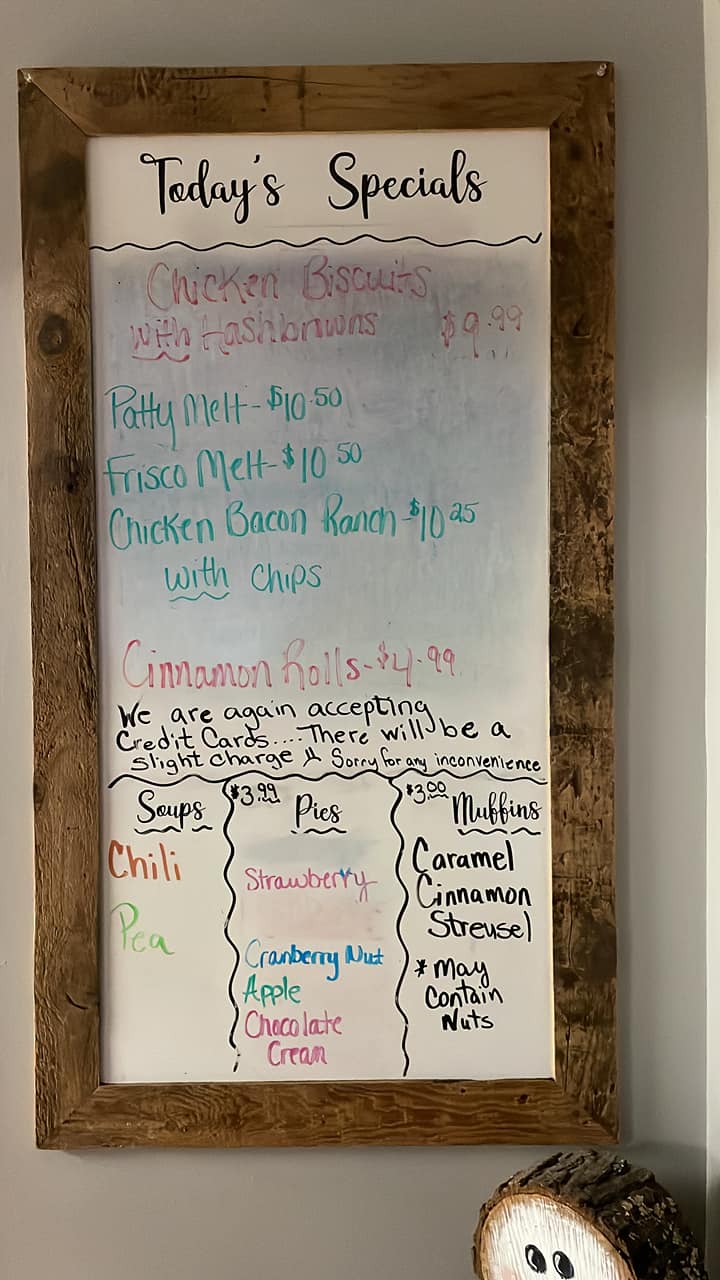 Today's Specials
Chicken Biscuits
with Hashbrowns $9.99
Patty Melt - $10.50
Frisco Melt - $10 50
Chicken Bacon Ranch - $10 25
with chips
Cinnamon Rolls - $4.99
We are again accepting
Credit Cards....There will be a
slight charge Sorry for any inconvenience
Soups
Chili
Pea
$3.99 Pies
Strawberry
Cranberry Nut
Apple
Chocolate
Cream
$3.00 Muffins
Caramel
Cinnamon
Streusel
* May
Contain
Nuts